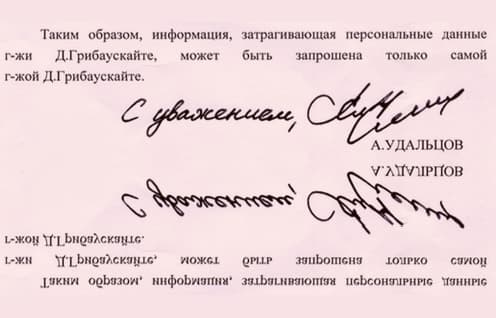 Таким образом, информация, затрагивающая персональные данные
г-жи Д.Грибаускайте, может быть запрошена только самой
г-жой Д.Грибаускайте.
С уважением,
А.УДАЛЬЦОВ
А.УДАЛЬЦОВ
С уважением,
г-жой Д.Грибаускайте.
г-жи Д.Грибаускайте, может быть запрошена только самой
Таким образом, информация, затрагивающая персональные данные